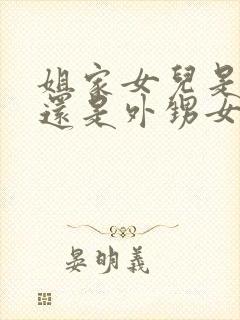 姐家女兒是
還是外甥女
晏明義